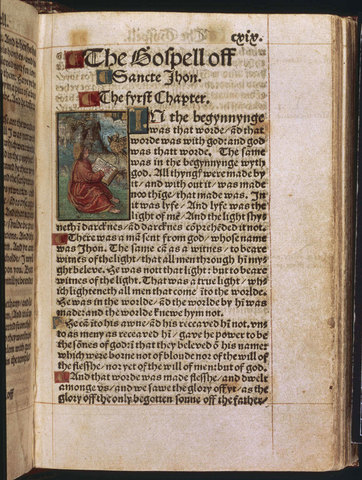 cxix.
The Gospell off
Sancte Jhon.
The fyrst Chapter.
IN the begynnynge
was that worde/ ād that
worde was with god: and god
was thatt worde. The same
was in the begynnynge wyth
god. All thyngſ were made by
it/ and with out it/ was made
noo thīge/ that made was. In
it was lyfe/ And lyfe was the
light of mē/ And the light shy⸗
neth ī darcknes/ ād darcknes cōprehēded it not.
There was a mā sent from god/ whose name
was Jhon. The same cā as a witnes/ to beare
witnes of the light/ that all men through hī my⸗
ght beleve. He was nott that light: but to beare
witnes of the light. That was a true light/ whi⸗
ch lighteneth all men that come ito the worlde.
He was in the worlde/ ād the worlde by hī was
made: and the worlde knewe hym not.
He cā ito his awne/ ād his receaved hī not. vns
to as meny as receaved hī/ gave he power to be
the sōnes of god: ī that they beleved ō his name:
which were borne not of bloude nor of the will of
the flesshe/ nor yet of the will of men: but of god.
And that worde was made flesshe/ and dwelt
amonge vs/ and we sawe the glory off yt/ as the
glory off the only begotten sonne off the father/